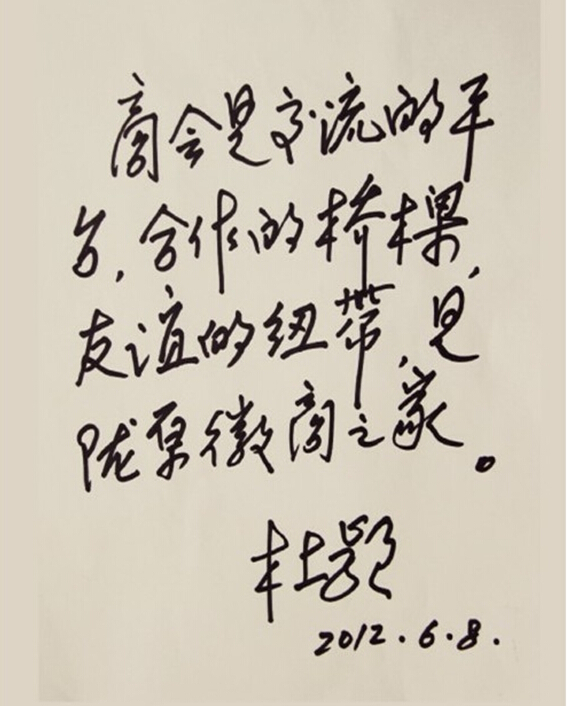 商会是交流的平
台,合作的桥樑,
友谊的纽带,是
陇原徽商之家。
杜颖
2012.6.8.